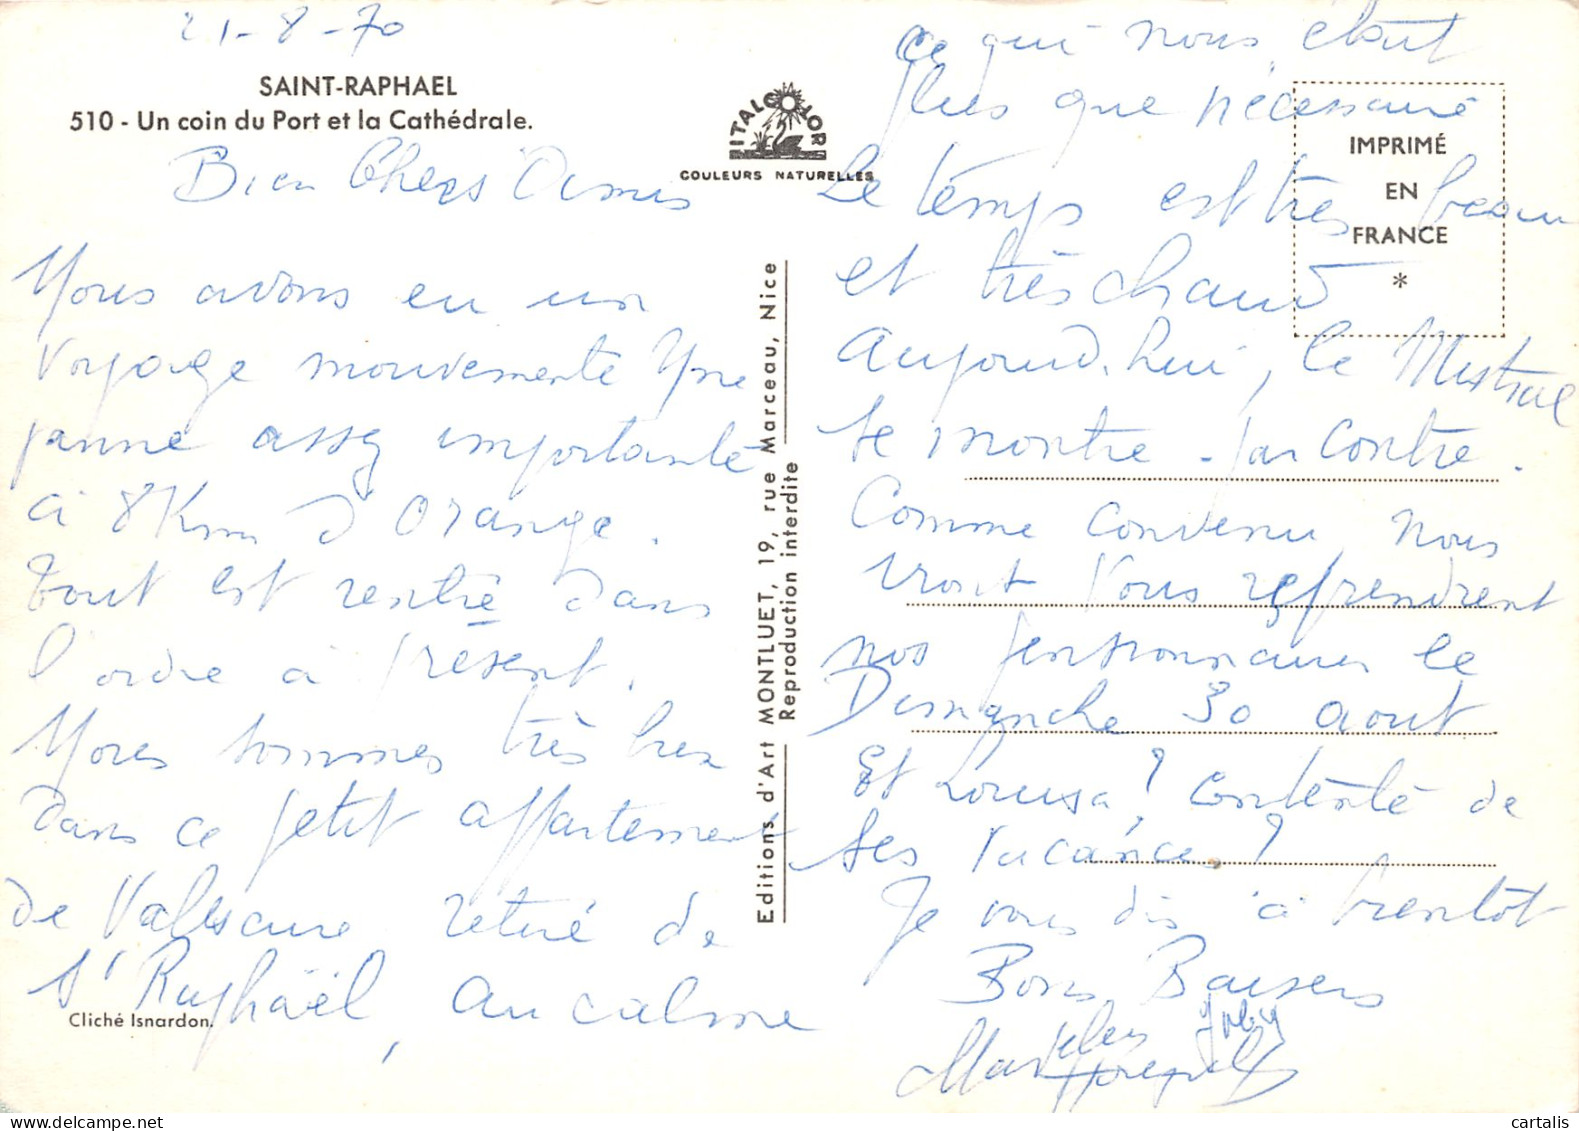 21-8-70
SAINT-RAPHAEL
510 - Un coin du Port et la Cathédrale.
Bien Chers Amis
Nous avons eu un
voyage mouvementé Une
panne assez importante
à 8 Km d'Orange.
Tout est rentré dans
l'ordre à présent.
Nous sommes très bien
dans ce petit appartement
de Valescure retiré de
St Raphaël, au calme
Cliché Isnardon.
ITALCOLOR
COULEURS NATURELLES
Editions d'Art MONTLUET, 19, rue Marceau, Nice
Reproduction interdite
ce qui nous était
plus que nécessaire
Le temps est très beau
et très chaud
Aujourd'hui, le Mistral
se montre par contre.
Comme convenu, nous
irons vous reprendre
nos pensionnaires le
Dimanche 30 aout
Et Louisa? Contente de
ses vacances?
Je vous dis à bientôt
Bons Baisers
IMPRIMÉ
EN
FRANCE
*
cartalis